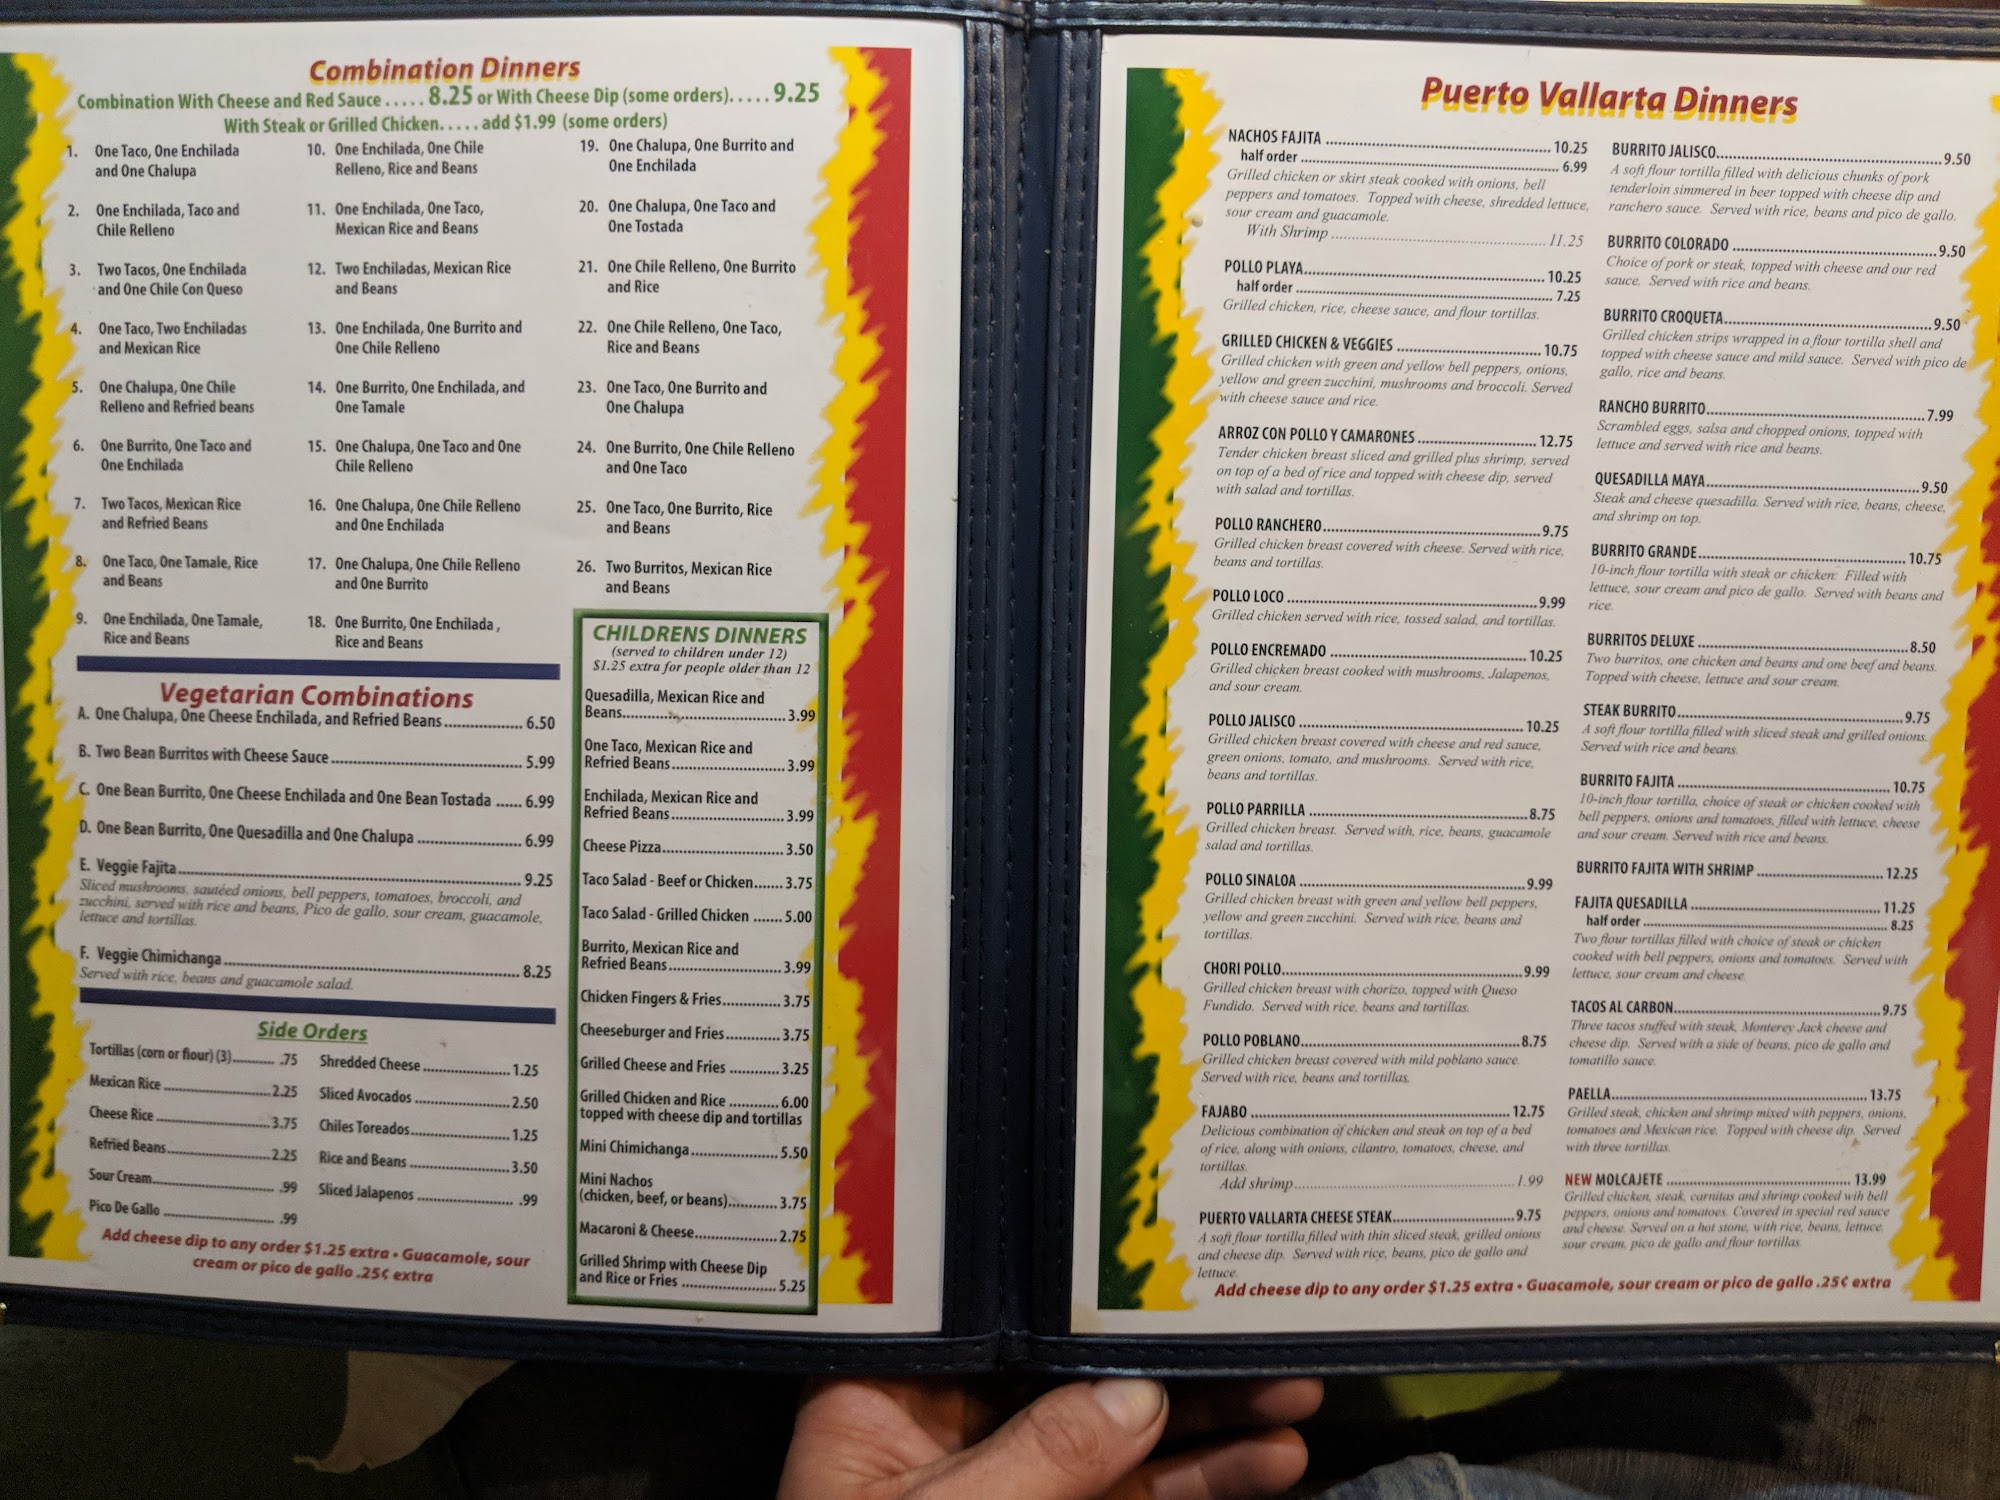 Combination Dinners
Combination With Cheese and Red Sauce ..... 8.25 or With Cheese Dip (some orders)..... 9.25
With Steak or Grilled Chicken..... add $1.99 (some orders)
1. One Taco, One Enchilada
and One Chalupa
2. One Enchilada, Taco and
Chile Relleno
3. Two Tacos, One Enchilada
and One Chile Con Queso
4. One Taco, Two Enchiladas
and Mexican Rice
5. One Chalupa, One Chile
Relleno and Refried beans
6. One Burrito, One Taco and
One Enchilada
7. Two Tacos, Mexican Rice
and Refried Beans
8. One Taco, One Tamale, Rice
and Beans
9. One Enchilada, One Tamale,
Rice and Beans
10. One Enchilada, One Chile
Relleno, Rice and Beans
11. One Enchilada, One Taco,
Mexican Rice and Beans
12. Two Enchiladas, Mexican Rice
and Beans
13. One Enchilada, One Burrito and
One Chile Relleno
14. One Burrito, One Enchilada, and
One Tamale
15. One Chalupa, One Taco and One
Chile Relleno
16. One Chalupa, One Chile Relleno
and One Enchilada
17. One Chalupa, One Chile Relleno
and One Burrito
18. One Burrito, One Enchilada ,
Rice and Beans
19. One Chalupa, One Burrito and
One Enchilada
20. One Chalupa, One Taco and
One Tostada
21. One Chile Relleno, One Burrito
and Rice
22. One Chile Relleno, One Taco,
Rice and Beans
23. One Taco, One Burrito and
One Chalupa
24. One Burrito, One Chile Relleno
and One Taco
25. One Taco, One Burrito, Rice
and Beans
26. Two Burritos, Mexican Rice
and Beans
Vegetarian Combinations
A. One Chalupa, One Cheese Enchilada, and Refried Beans ............ 6.50
B. Two Bean Burritos with Cheese Sauce ............ 5.99
C. One Bean Burrito, One Cheese Enchilada and One Bean Tostada ...... 6.99
D. One Bean Burrito, One Quesadilla and One Chalupa ............ 6.99
E. Veggie Fajita ............ 9.25
Sliced mushrooms, sautéed onions, bell peppers, tomatoes, broccoli, and
zucchini, served with rice and beans, Pico de gallo, sour cream, guacamole,
lettuce and tortillas.
F. Veggie Chimichanga ............ 8.25
Served with rice, beans and guacamole salad.
Side Orders
Tortillas (corn or flour) (3) ............ .75
Mexican Rice ............ 2.25
Cheese Rice ............ 3.75
Refried Beans ............ 2.25
Sour Cream ............ .99
Pico De Gallo ............ .99
Shredded Cheese ............ 1.25
Sliced Avocados ............ 2.50
Chiles Toreados ............ 1.25
Rice and Beans ............ 3.50
Sliced Jalapenos ............ .99
Add cheese dip to any order $1.25 extra • Guacamole, sour
cream or pico de gallo .25¢ extra
CHILDRENS DINNERS
(served to children under 12)
$1.25 extra for people older than 12
Quesadilla, Mexican Rice and
Beans ............ 3.99
One Taco, Mexican Rice and
Refried Beans ............ 3.99
Enchilada, Mexican Rice and
Refried Beans ............ 3.99
Cheese Pizza ............ 3.50
Taco Salad - Beef or Chicken ....... 3.75
Taco Salad - Grilled Chicken ...... 5.00
Burrito, Mexican Rice and
Refried Beans ............ 3.99
Chicken Fingers & Fries ............ 3.75
Cheeseburger and Fries ............ 3.75
Grilled Cheese and Fries ............ 3.25
Grilled Chicken and Rice ............ 6.00
topped with cheese dip and tortillas
Mini Chimichanga ............ 5.50
Mini Nachos
(chicken, beef, or beans) ............ 3.75
Macaroni & Cheese ............ 2.75
Grilled Shrimp with Cheese Dip
and Rice or Fries ............ 5.25
Puerto Vallarta Dinners
NACHOS FAJITA ............ 10.25
half order ............ 6.99
Grilled chicken or skirt steak cooked with onions, bell
peppers and tomatoes. Topped with cheese, shredded lettuce,
sour cream and guacamole.
With Shrimp ............ 11.25
POLLO PLAYA ............ 10.25
half order ............ 7.25
Grilled chicken, rice, cheese sauce, and flour tortillas.
GRILLED CHICKEN & VEGGIES ............ 10.75
Grilled chicken with green and yellow bell peppers, onions,
yellow and green zucchini, mushrooms and broccoli. Served
with cheese sauce and rice.
ARROZ CON POLLO Y CAMARONES ............ 12.75
Tender chicken breast sliced and grilled plus shrimp, served
on top of a bed of rice and topped with cheese dip, served
with salad and tortillas.
POLLO RANCHERO ............ 9.75
Grilled chicken breast covered with cheese. Served with rice,
beans and tortillas.
POLLO LOCO ............ 9.99
Grilled chicken served with rice, tossed salad, and tortillas.
POLLO ENCREMADO ............ 10.25
Grilled chicken breast cooked with mushrooms, Jalapenos,
and sour cream.
POLLO JALISCO ............ 10.25
Grilled chicken breast covered with cheese and red sauce,
green onions, tomato, and mushrooms. Served with rice,
beans and tortillas.
POLLO PARRILLA ............ 8.75
Grilled chicken breast. Served with, rice, beans, guacamole
salad and tortillas.
POLLO SINALOA ............ 9.99
Grilled chicken breast with green and yellow bell peppers,
yellow and green zucchini. Served with rice, beans and
tortillas.
CHORI POLLO ............ 9.99
Grilled chicken breast with chorizo, topped with Queso
Fundido. Served with rice, beans and tortillas.
POLLO POBLANO ............ 8.75
Grilled chicken breast covered with mild poblano sauce.
Served with rice, beans and tortillas.
FAJABO ............ 12.75
Delicious combination of chicken and steak on top of a bed
of rice, along with onions, cilantro, tomatoes, cheese, and
tortillas.
Add shrimp ............ 1.99
PUERTO VALLARTA CHEESE STEAK ............ 9.75
A soft flour tortilla filled with thin sliced steak, grilled onions
and cheese dip. Served with rice, beans, pico de gallo and
lettuce.
BURRITO JALISCO ............ 9.50
A soft flour tortilla filled with delicious chunks of pork
tenderloin simmered in beer topped with cheese dip and
ranchero sauce. Served with rice, beans and pico de gallo.
BURRITO COLORADO ............ 9.50
Choice of pork or steak, topped with cheese and our red
sauce. Served with rice and beans.
BURRITO CROQUETA ............ 9.50
Grilled chicken strips wrapped in a flour tortilla shell and
topped with cheese sauce and mild sauce. Served with pico de
gallo, rice and beans.
RANCHO BURRITO ............ 7.99
Scrambled eggs, salsa and chopped onions, topped with
lettuce and served with rice and beans.
QUESADILLA MAYA ............ 9.50
Steak and cheese quesadilla. Served with rice, beans, cheese,
and shrimp on top.
BURRITO GRANDE ............ 10.75
10-inch flour tortilla with steak or chicken. Filled with
lettuce, sour cream and pico de gallo. Served with beans and
rice.
BURRITOS DELUXE ............ 8.50
Two burritos, one chicken and beans and one beef and beans.
Topped with cheese, lettuce and sour cream.
STEAK BURRITO ............ 9.75
A soft flour tortilla filled with sliced steak and grilled onions.
Served with rice and beans.
BURRITO FAJITA ............ 10.75
10-inch flour tortilla, choice of steak or chicken cooked with
bell peppers, onions and tomatoes, filled with lettuce, cheese
and sour cream. Served with rice and beans.
BURRITO FAJITA WITH SHRIMP ............ 12.25
FAJITA QUESADILLA ............ 11.25
half order ............ 8.25
Two flour tortillas filled with choice of steak or chicken
cooked with bell peppers, onions and tomatoes. Served with
lettuce, sour cream and cheese.
TACOS AL CARBON ............ 9.75
Three tacos stuffed with steak, Monterey Jack cheese and
cheese dip. Served with a side of beans, pico de gallo and
tomatillo sauce.
PAELLA ............ 13.75
Grilled steak, chicken and shrimp mixed with peppers, onions,
tomatoes and Mexican rice. Topped with cheese dip. Served
with three tortillas.
NEW MOLCAJETE ............ 13.99
Grilled chicken, steak, carnitas and shrimp cooked wih bell
peppers, onions and tomatoes. Covered in special red sauce
and cheese. Served on a hot stone, with rice, beans, lettuce,
sour cream, pico de gallo and flour tortillas.
Add cheese dip to any order $1.25 extra • Guacamole, sour cream or pico de gallo .25¢ extra